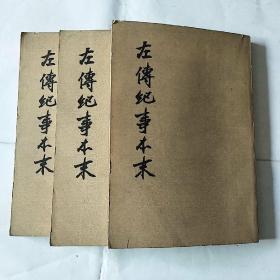 左傳紀事本末
左傳紀事本末
左傳紀事本末